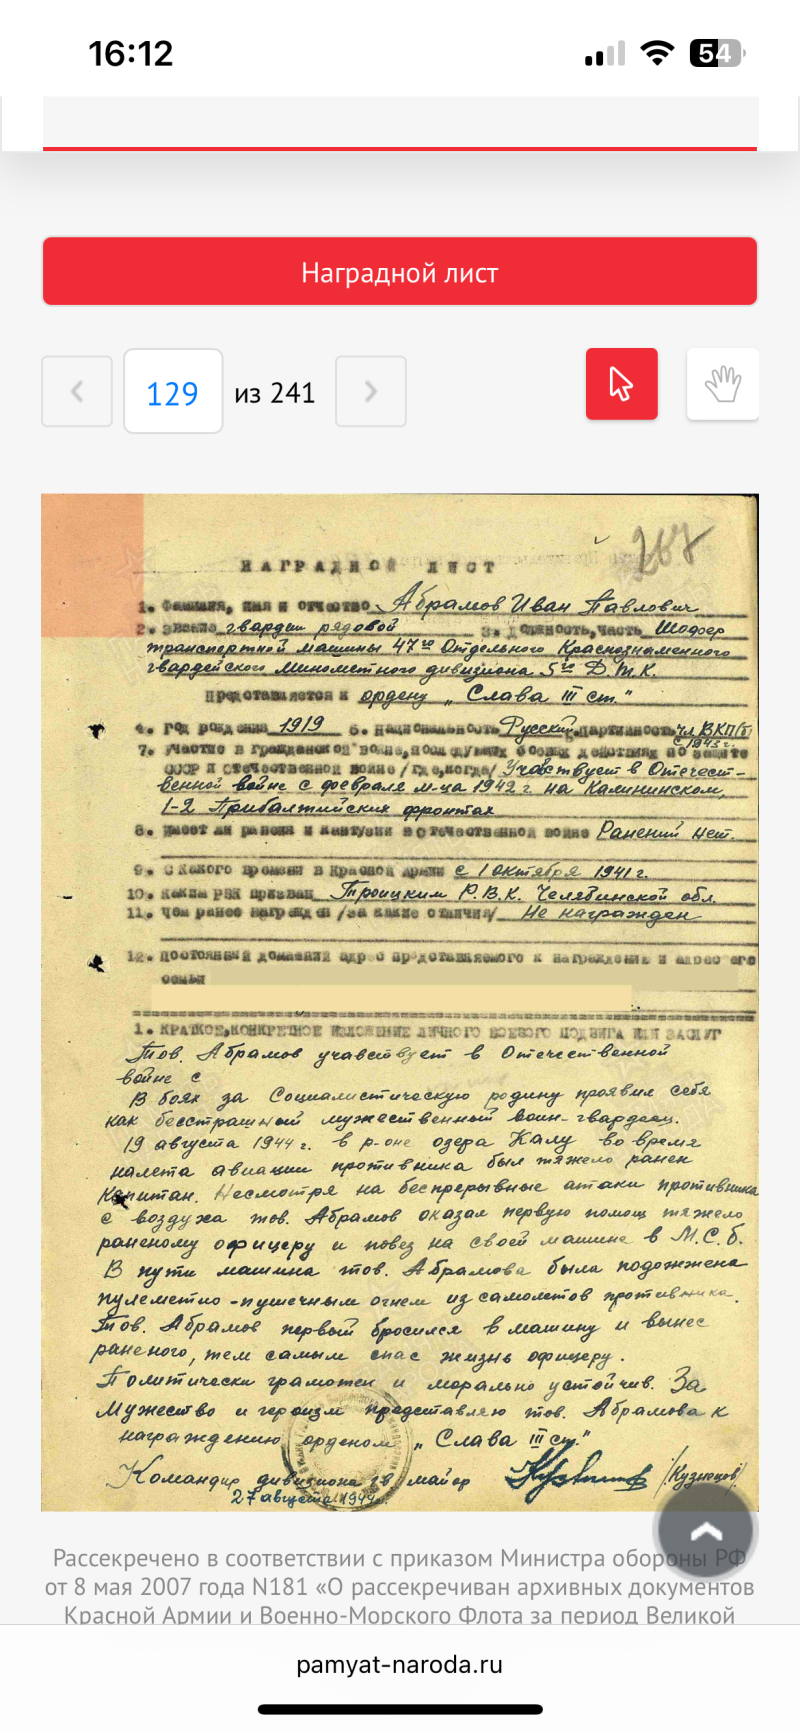 16:12
54
Наградной лист
129 из 241
267
НАГРАДНОЙ ЛИСТ
1. Фамилия, имя и отчество Абрамов Иван Павлович
2. звание гвардии рядовой 3. должность, часть Шофер
транспортной машины 47го Отдельного Краснознаменного
гвардейского Минометного дивизиона 5го Д.Т.К.
Представляется к ордену „Слава III ст."
4. Год рождения 1919 5. Национальность Русский 6. партийность чл. ВКП(б)
с 1943 г.
7. Участие в гражданской войне, последующих боевых действиях по защите
СССР и отечественной войне /где, когда/ Учавствует в Отечест-
венной войне с февраля м-ца 1942 г. на Калининском,
1-2 Прибалтийских фронтах
8. Имеет ли ранения и контузии в отечественной войне Ранений нет.
9. С какого времени в Красной Армии с 1 октября 1941 г.
10. каким РВК призван Троицким Р.В.К. Челябинской обл.
11. чем ранее награжден /за какие отличия/ Не награжден
12. постоянный домашний адрес представляемого к награждению и адрес его
семьи
1. КРАТКОЕ, КОНКРЕТНОЕ ИЗЛОЖЕНИЕ ЛИЧНОГО БОЕВОГО ПОДВИГА ИЛИ ЗАСЛУГ
Тов. Абрамов учавствует в Отечественной
войне с
В боях за Социалистическую родину проявил себя
как бесстрашный мужественный воин-гвардеец.
19 августа 1944 г. в р-оне озера Калу во время
налета авиации противника был тяжело ранен
Капитан. Несмотря на беспрерывные атаки противника
с воздуха тов. Абрамов оказал первую помощ тяжело
раненому офицеру и повез на своей машине в М.С.Б.
В пути машина тов. Абрамова была подожжена
пулеметно-пушечным огнем из самолетов противника.
Тов. Абрамов первый бросился в машину и вынес
раненого, тем самым спас жизнь офицеру.
Политически грамотен и морально устойчив. За
Мужество и героизм представляю тов. Абрамова к
награждению орденом „Слава III ст."
Командир дивизиона гв. майор /Кузнецов/
27 августа 1944 г.
Рассекречено в соответствии с приказом Министра обороны РФ
от 8 мая 2007 года N181 «О рассекречиван архивных документов
Красной Армии и Военно-Морского Флота за период Великой
pamyat-naroda.ru